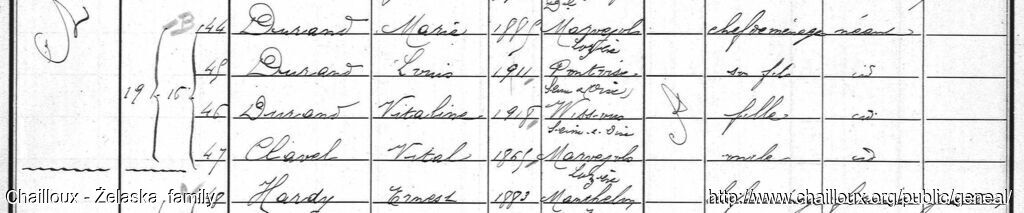 44 Durand Marie 1889 Marvejols Lozère chef de ménage néant
45 Durand Louis 1911 Pontoise Seine et Oise son fils id
19 15 46 Durand Vitaline 1918 Wissous Seine-et-Oise fille id
47 Clavel Vital 1865 Marvejols Lozère oncle id
48 Hardy Ernest 1883
Chailloux - Żelaska family
http://www.chailloux.org/public/geneal/